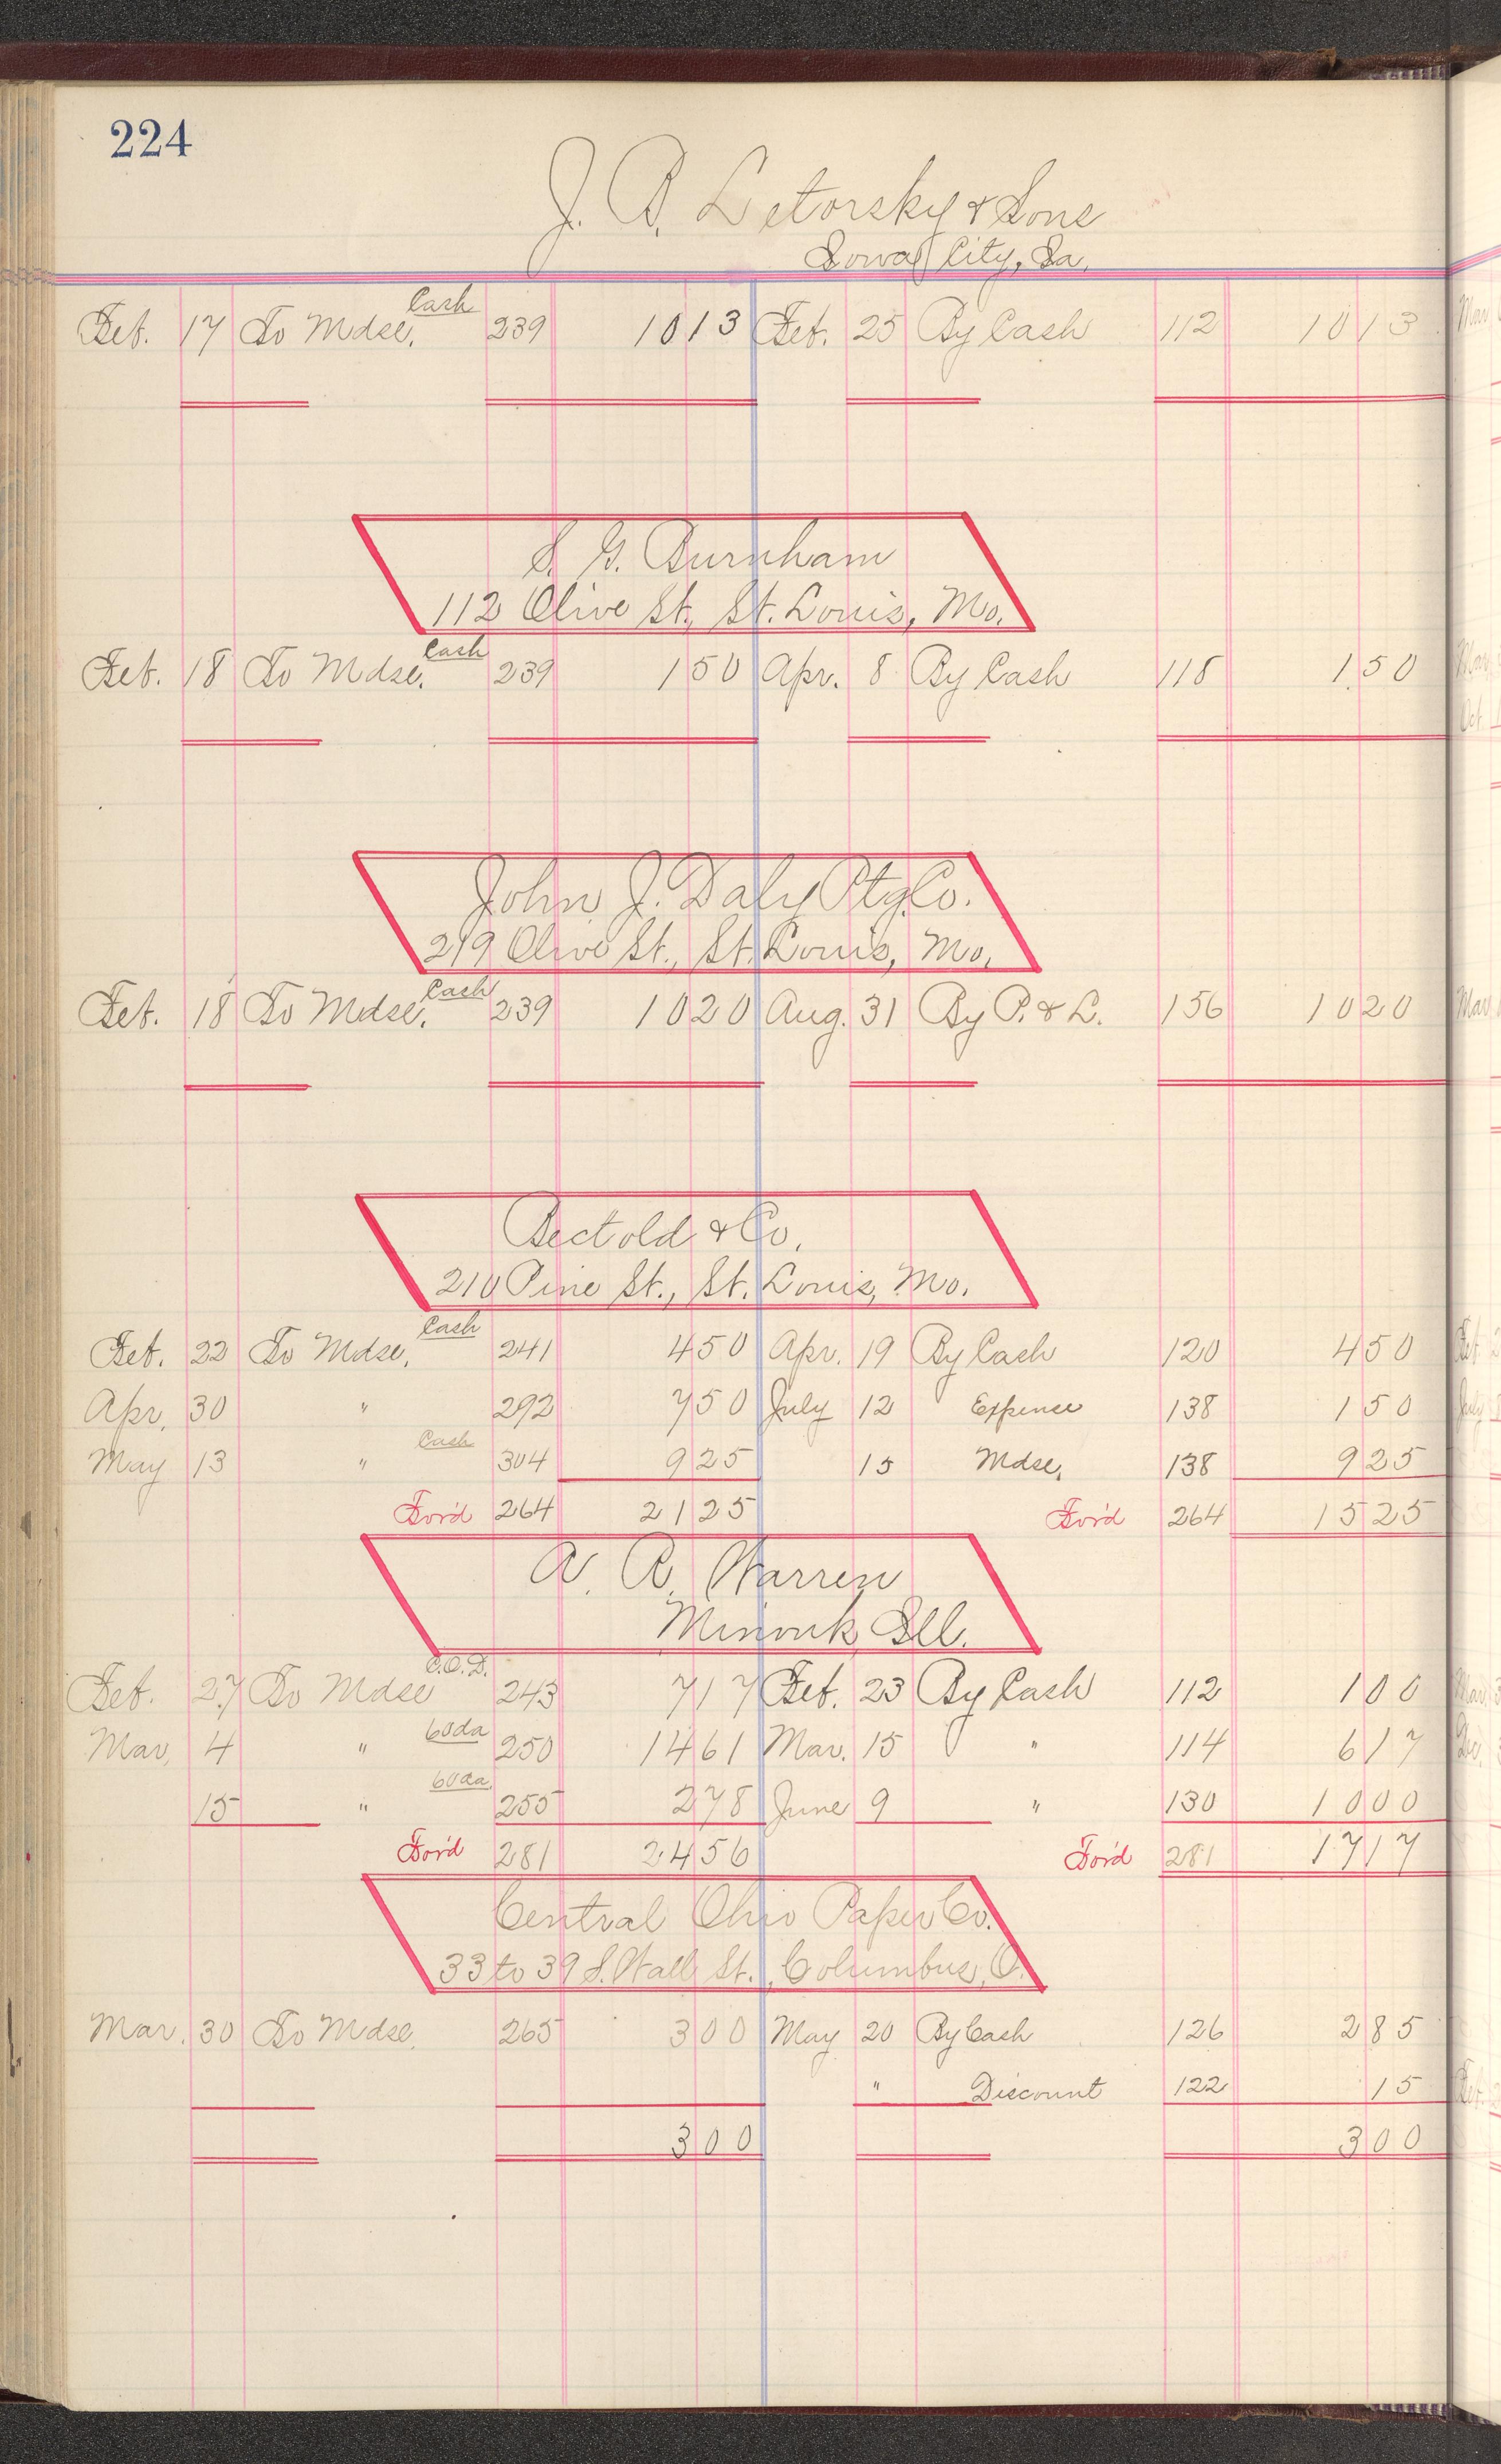 224
J. B. Letovsky & Sons
Iowa City, Ia.
Feb. 17 To Mdse. Cash 239 10 13 Feb. 25 By Cash 112 10 13
S. G. Burnham
112 Olive St., St. Louis, Mo.
Feb. 18 To Mdse. Cash 239 1 50 Apr. 8 By Cash 118 1 50
John J. Daly Ptg. Co.
219 Olive St., St. Louis, Mo.
Feb. 18 To Mdse. Cash 239 10 20 Aug. 31 By P. & L. 156 10 20
Bectold & Co.
210 Pine St., St. Louis, Mo.
Feb. 22 To Mdse. Cash 241 4 50 Apr. 19 By Cash 120 4 50
Apr. 30 " 292 7 50 July 12 Expense 138 1 50
May 13 " Cash 304 9 25 15 Mdse. 138 9 25
For'd 264 21 25 For'd 264 15 25
A. R. Warren
Minonk, Ill.
Feb. 27 To Mdse C.O.D. 243 7 17 Feb. 23 By Cash 112 1 00
Mar. 4 " 60da 250 14 61 Mar. 15 " 114 6 17
15 " 60da 255 2 78 June 9 " 130 10 00
For'd 281 24 56 For'd 281 17 17
Central Ohio Paper Co.
33 to 39 S. Wall St., Columbus, O.
Mar. 30 To Mdse. 265 3 00 May 20 By Cash 126 2 85
" Discount 122 15
3 00 3 00